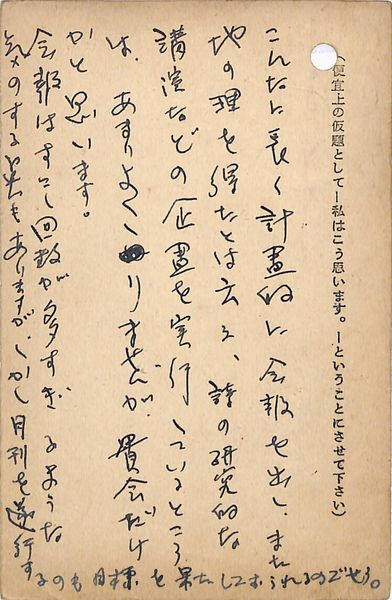 （便宜上の仮題として―私はこう思います。―ということにさせて下さい）
こんなに長く計畫的に会報を出し、また
地の理を得たとは云え、詩の研究的な
講演などの企畫を実行しているところ
は、あまりよくありませんが、貴会だけ
かと思います。
会報はすこし回数が多すぎるような
気のする点もありますが、しかし月刊を遂行す
るのも目標を果たしておられるのでせう。